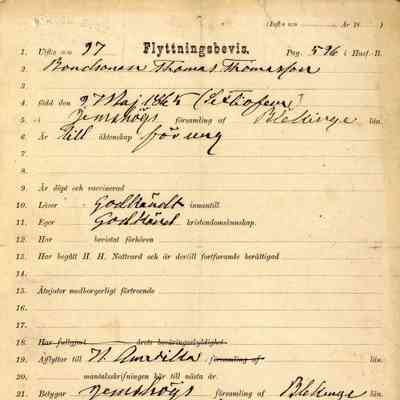 (Infts n:o ........ År 18 )
1. Utfts n:o 97 Flyttningsbevis. Pag. 596 i Husf.-B.
2. Bondsonen Thomas Thomasson
3.
4. född den 27 Maj 1865 (
5. i Jemshögs församling af Blekinge län.
6. Är till äktenskap för ung
7.
8.
9. Är döpt och vaccinerad
10. Läser Godkändt innantill
11. Eger Godkänd kristendomskunskap.
12. Har bevistat förhören
13. Har begått H. H. Nattvard och är dertill fortfarande berättigad
14.
15. Åtnjuter medborgerligt förtroende
16.
17.
18. Har fullgjort årets beväringsskyldighet.
19. Afflyttar till N. Amerika församling af län.
20. mantalsskrifningen här till nästa år.
21. Betygar Jemshögs församling af Blekinge län